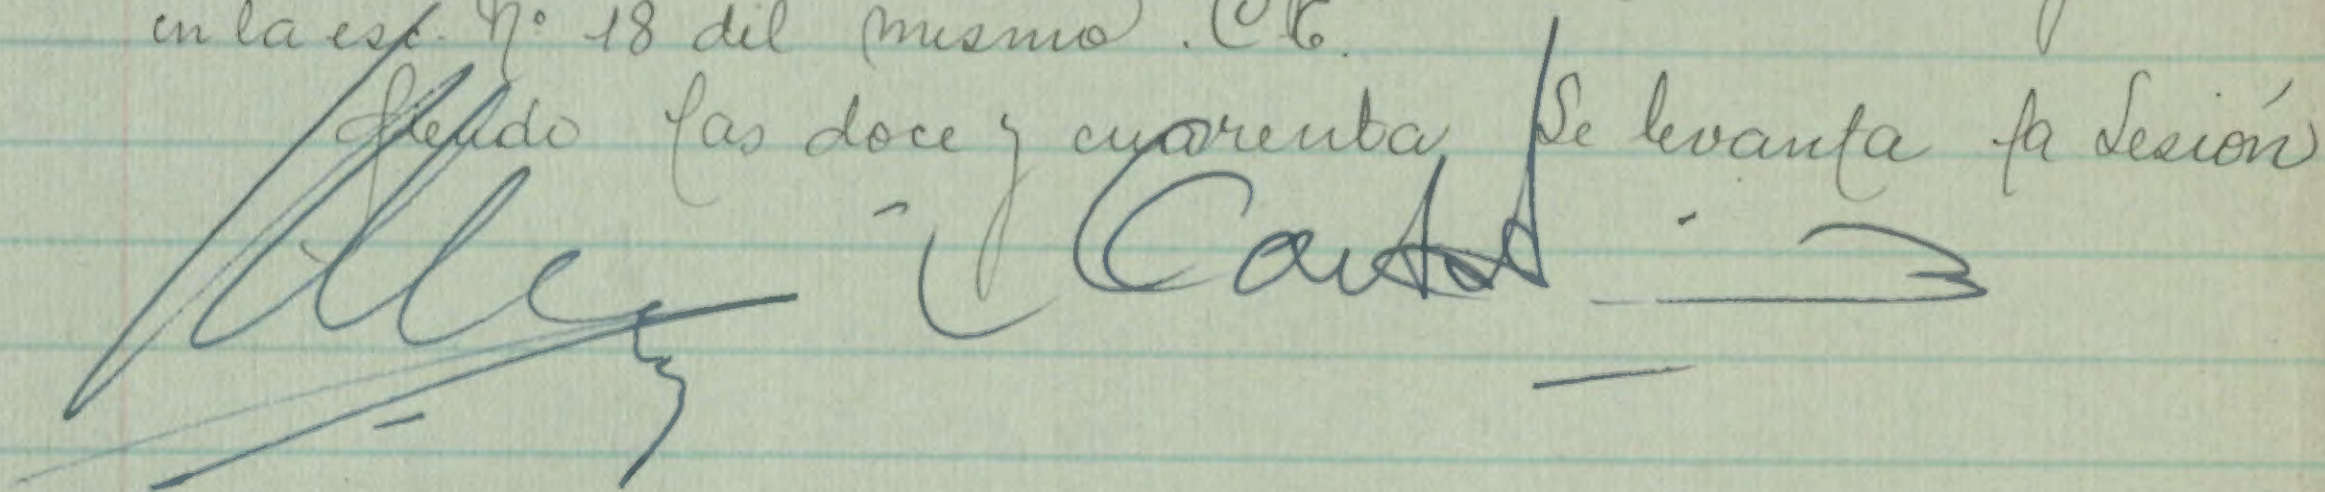 en la esc. Nº 18 del mismo. C E.
Siendo las doce y cuarenta Se levanta la Sesión